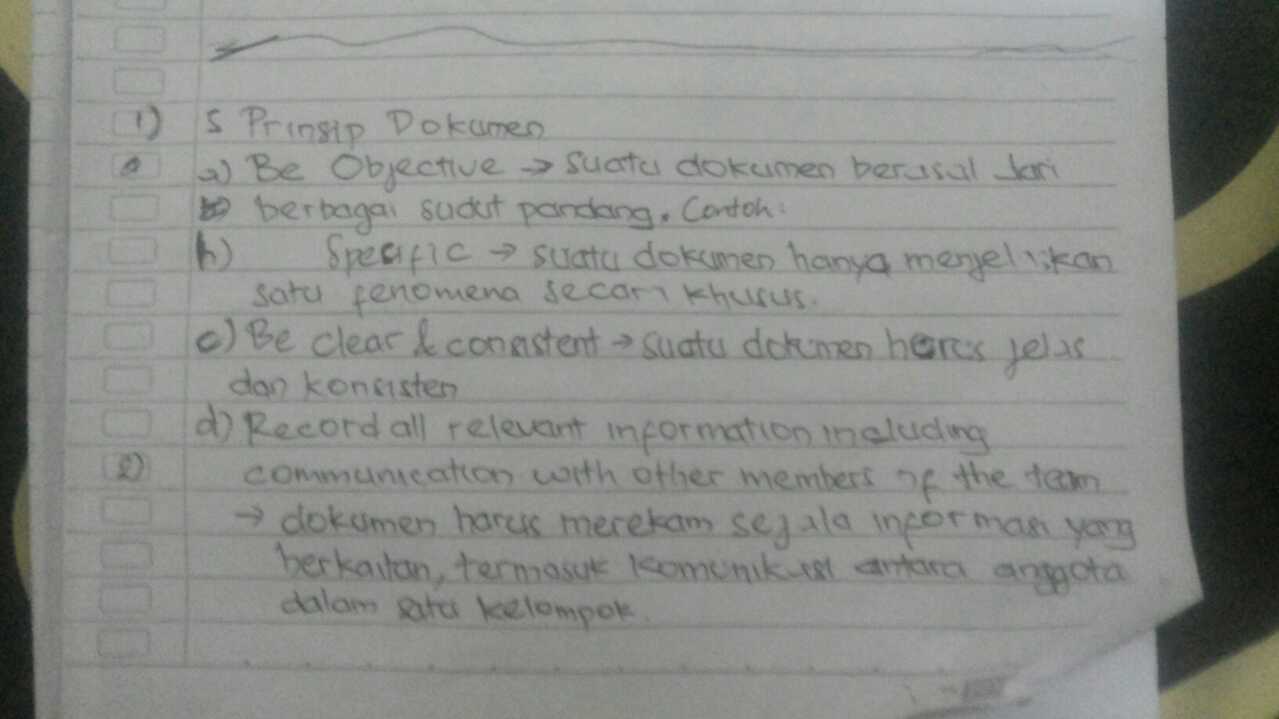 1) 5 Prinsip Dokumen
a) Be Objective → suatu dokumen berasal dari
berbagai sudut pandang. Contoh:
b) Specific → suatu dokumen hanya menjelaskan
satu fenomena secara khusus.
c) Be clear & consistent → suatu dokumen harus jelas
dan konsisten
d) Record all relevant information including
2) communication with other members of the team
→ dokumen harus merekam segala informasi yang
berkaitan, termasuk komunikasi antara anggota
dalam satu kelompok.